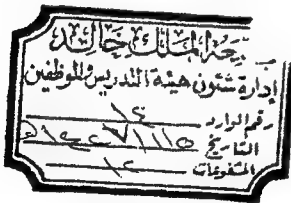 جامعة الملك خالد
إدارة شئون هيئة التدريس والموظفين
رقم الوارد ١٢
التاريخ
المشفوعات ١٢